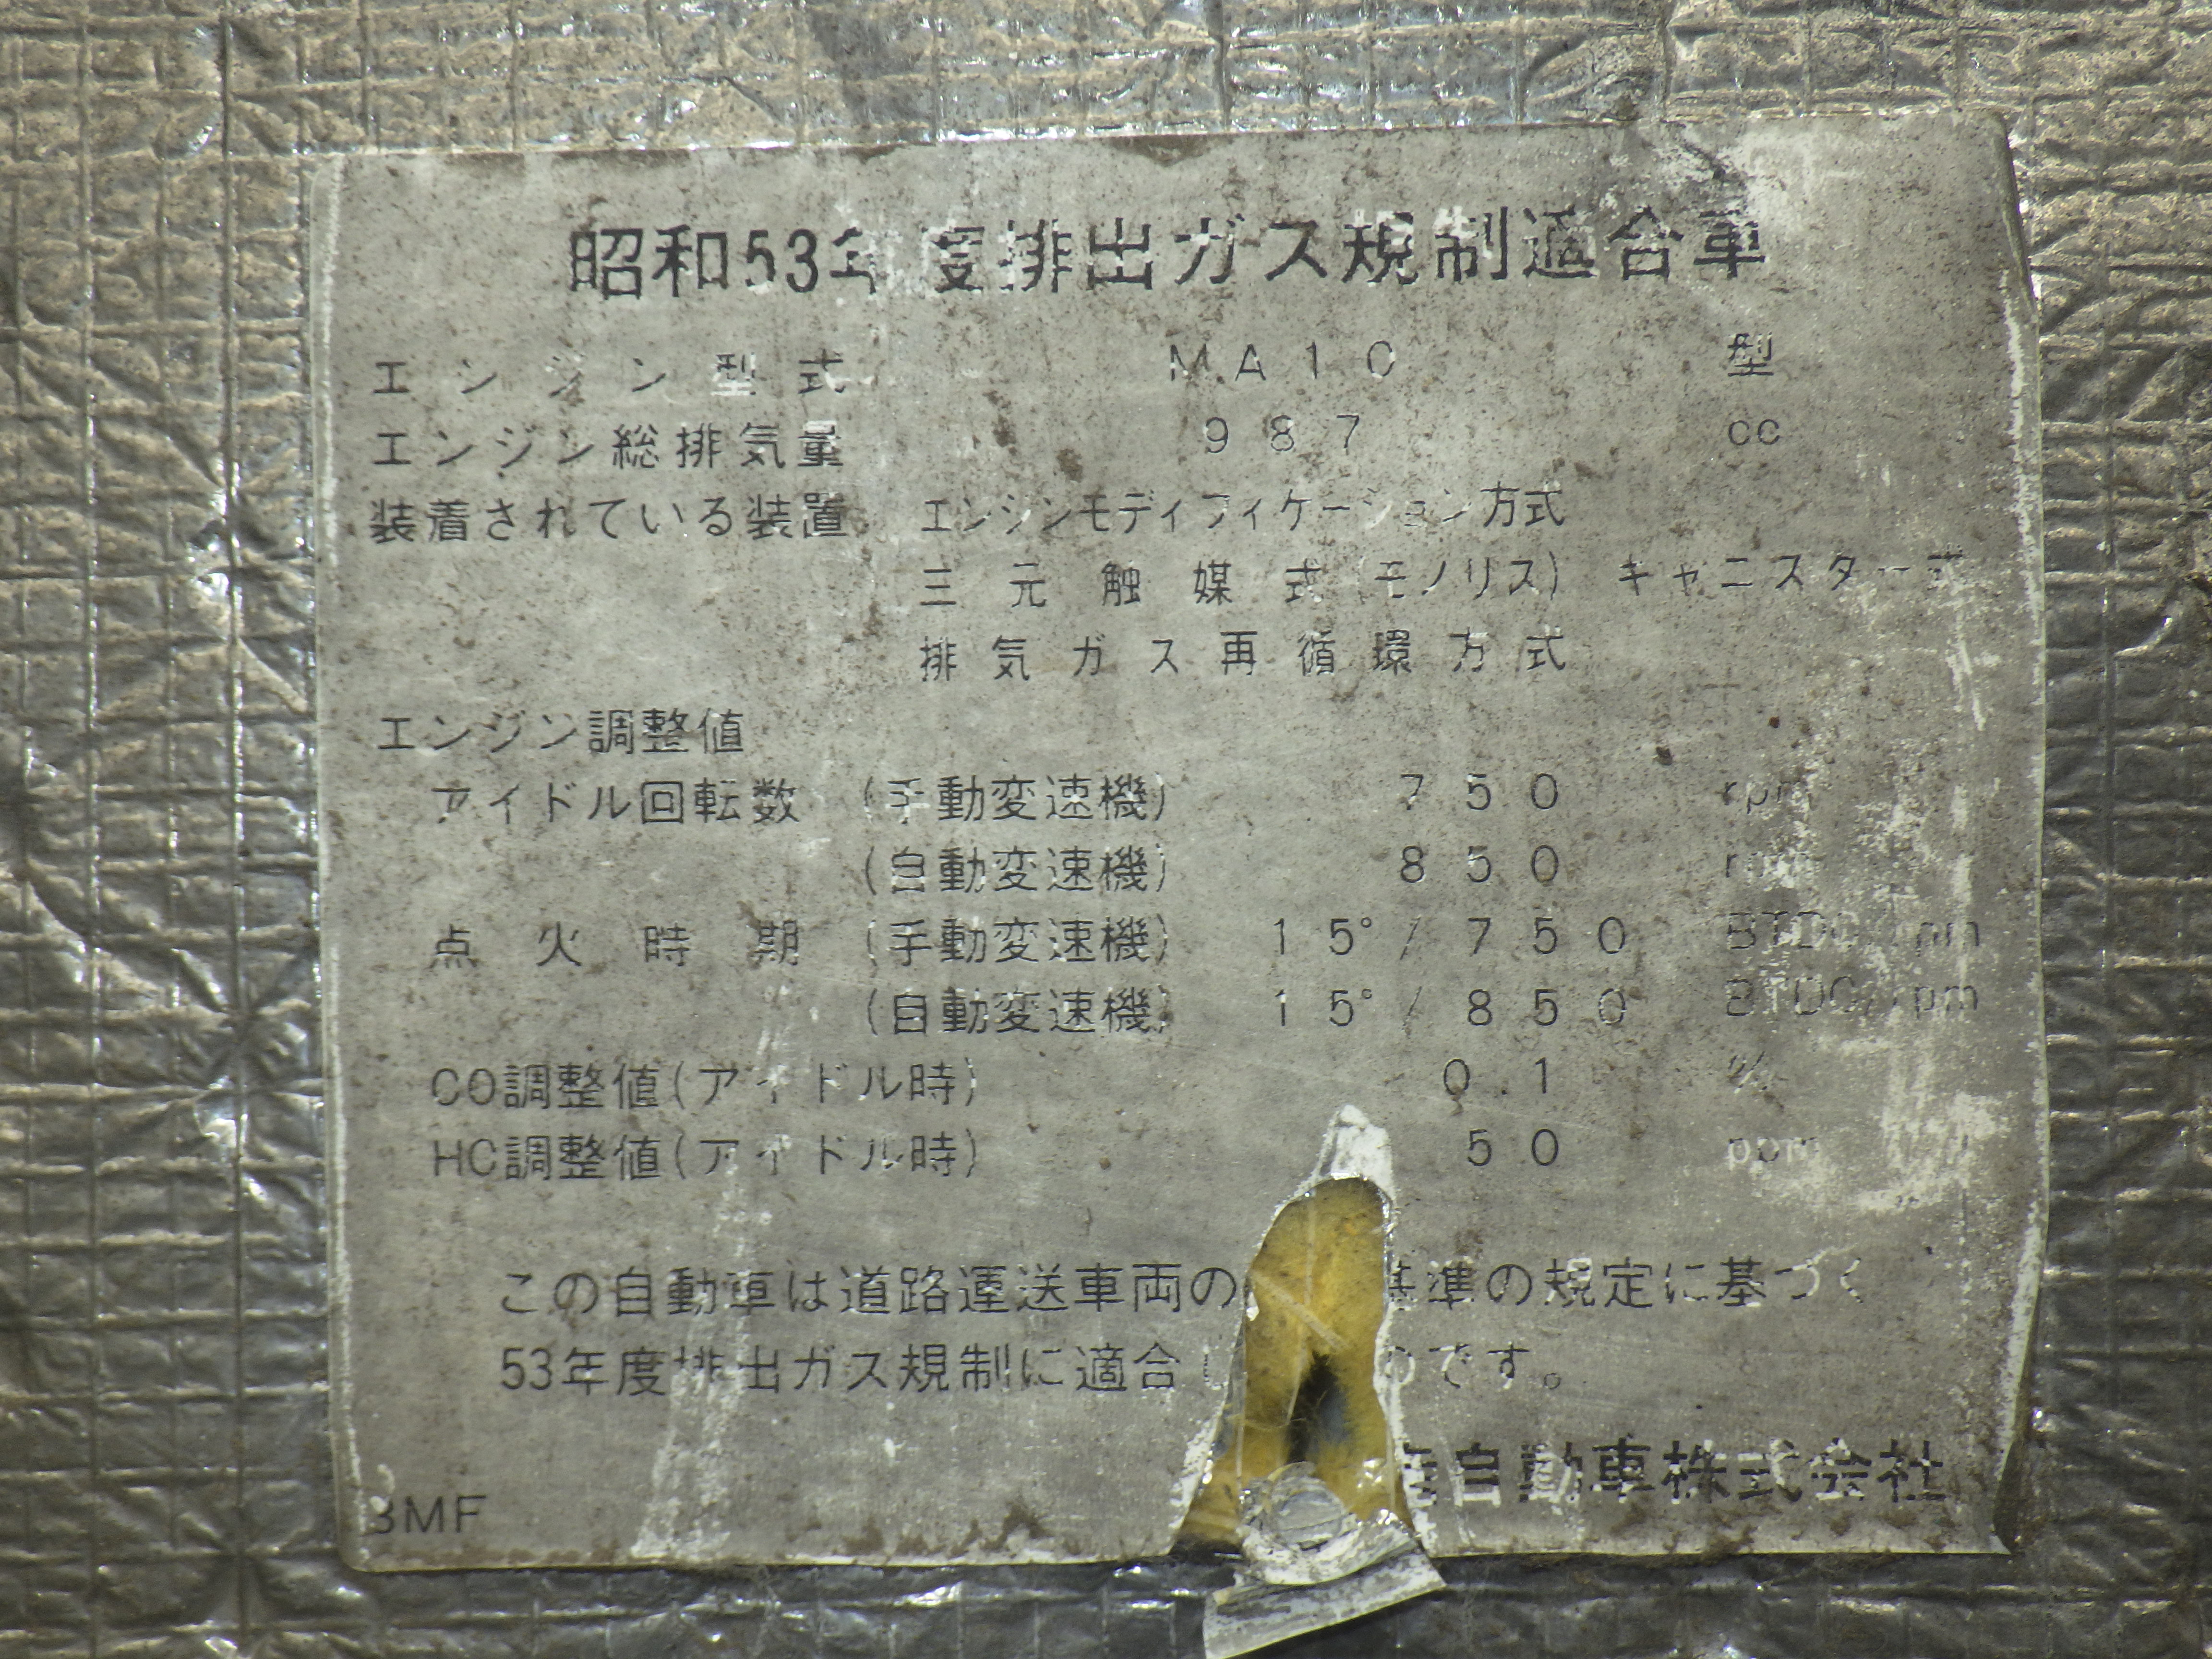 昭和53年度排出ガス規制適合車
エンジン型式 MA10 型
エンジン総排気量 987 cc
装着されている装置 エンジンモディフィケーション方式
三元触媒式(モノリス) キャニスター式
排気ガス再循環方式
エンジン調整値
アイドル回転数 (手動変速機) 750 rpm
(自動変速機) 850 rpm
点火時期 (手動変速機) 15°/750 BTDC/rpm
(自動変速機) 15°/850 BTDC/rpm
CO調整値(アイドル時) 0.1 %
HC調整値(アイドル時) 50 ppm
この自動車は道路運送車両の 基準の規定に基づく
53年度排出ガス規制に適合し のです。
自動車株式会社
BMF